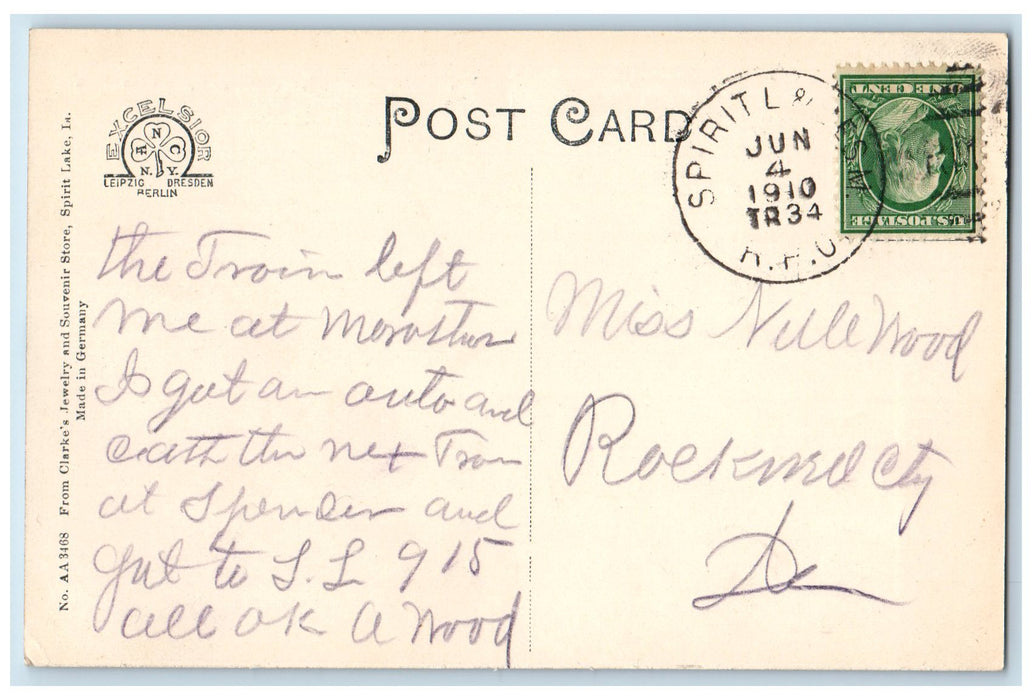 POST CARD
EXCELSIOR
A N C
N. Y.
LEIPZIG DRESDEN
BERLIN
No. AA3468 From Clarke's Jewelry and Souvenir Store, Spirit Lake, Ia.
Made in Germany
SPIRIT L & DES M
JUN
4
1910
TR 34
R.P.O.
ONE CENT
U.S. POSTAGE
the Train left
me at
I got an auto and
cath the next Tran
at Spencer and
gut to S. L 9 15
all ok A Wood
Miss Nelle Wood
Rockwed cty
Ia